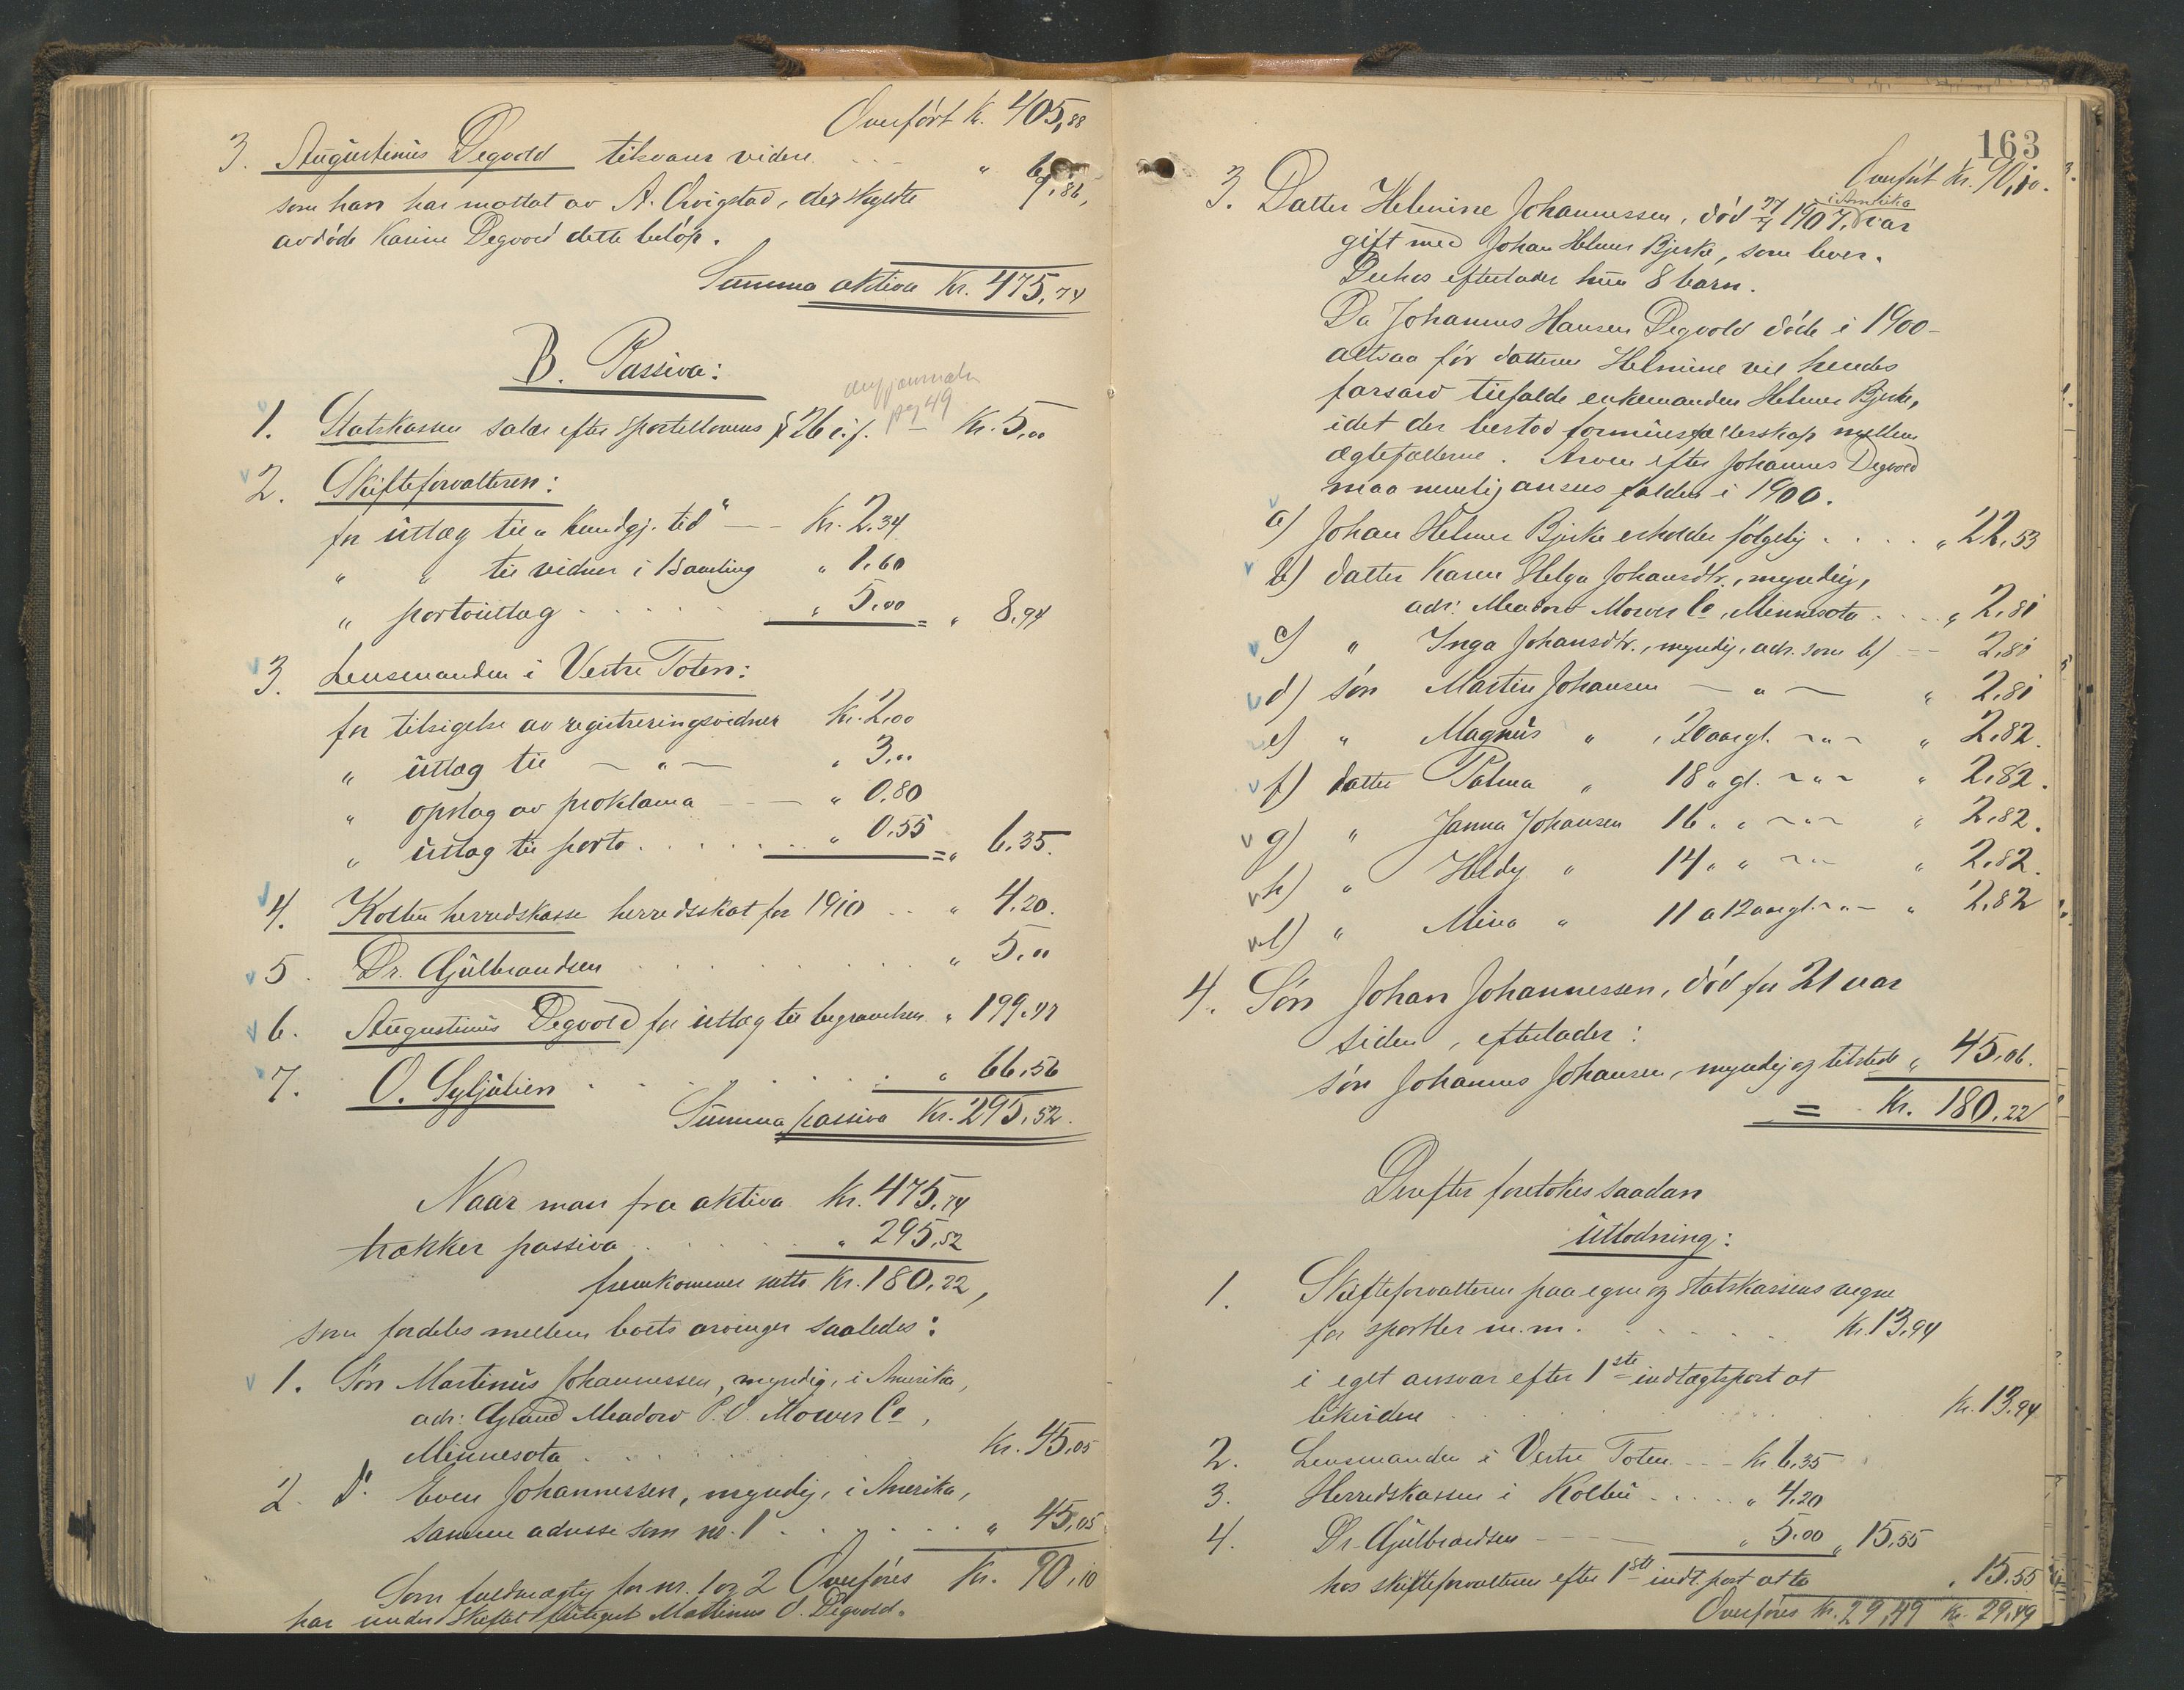 Overført Kr. 405,88
3. Augustinus Degvold tilsvarer videre . . . " 69,86,
som han har mottat av A. Qvigstad, der skyldte
avdøde Karine Degvold dette beløp.
Summa aktiva Kr. 475,74
B. Passiva:
pag 49
1. Statskassen salær efter sportellovens § 26 i.f. — Kr. 5,00
2. Skifteforvalteren:
for utlæg til "Kundgj. tid" — - Kr. 2,34
" " til vidner i 1 samling " 1,60
" portoutlæg . . . . . " 5,00 = " 8,94
3. Lensmanden i Vestre Toten:
for tilsigelse av registreringsvidner Kr. 2,00
" utlæg til — " — " 3,00
" opslag av proklama - - — " 0,80
" utlæg til porto . . . . . " 0,55 = " 6,35.
4. Kolbu herredskasse herredsskat for 1910 . . " 4,20.
5. Dr. Gulbrandsen . . . . . " 5,00
6. Augustinus Degvold for utlæg til begravelsen " 199,47
7. O. Syljulien . . . . . " 66,56
Summa passiva Kr. 295,52.
Naar man fra aktiva Kr. 475,74
trækker passiva . . . . " 295,52
fremkommer netto Kr. 180,22,
som fordeles mellem boets arvinger saaledes:
1. Søn Martinus Johannessen, myndig, i Amerika,
adr: Grand Meadow P.O. Mower Co,
Minnesota . . . . . Kr. 45,05
2. Do. Even Johannessen, myndig, i Amerika,
samme adresse som no. 1 . . . . . " 45,05
Overføres Kr. 90,10
Som fuldmægtig for nr. 1 og 2
har under skiftet fungert Martinus O. Degvold.
163
Overført Kr. 90,10.
3. Datter Helmine Johannessen, død 27/4 1907, i Amerika var
gift med Johan Helmer Bjerke, som lever.
Derhos efterlader hun 8 barn.
Da Johannes Hansen Degvold døde i 1900 -
altsaa før datteren Helmine vil hendes
farsarv tilfalde enkemanden Helmer Bjerke,
idet der bestod formuesfællesskap mellem
ægtefællerne. Arven efter Johannes Degvold
maa nemlig ansees falden i 1900.
a) Johan Helmer Bjerke erholder følgelig . . . . " 22,53
b) datter Karen Helga Johansdtr., myndig,
adr: Meadow Mower Co, Minnesota . . . . " 2,81
c) " Inga Johansdtr., myndig, adr. som b) — - 2,81
d) søn Martin Johansen — " — " 2,81
e) " Magnus " , 20 aar gl. — " — " 2,82.
f) datter Palma " 18 " gl. — " — " 2,82.
g) " Janna Johansen 16 " " — " — " 2,82.
h) " Heldy " 14 " " — " — " 2,82.
i) " Mina " 11 a 12 aar gl. — " — " 2,82
4. Søn Johan Johannessen, død for 21 aar
siden, efterlader:
søn Johannes Johansen, myndig og tilstede " 45,06.
= Kr. 180,22
Derefter foretokes saadan
Utlodning:
1. Skifteforvalteren paa egne og statskassens vegne
for sportler m.m. . . . . . Kr. 13,94
i eget ansvar efter 1ste indtægtspost at
likvidere . . . . . Kr. 13,94
2. Lensmanden i Vestre Toten - - - Kr. 6,35
3. Herredskassen i Kolbu . . . . " 4,20
4. Dr. Gulbrandsen - - - " 5,00 " 15,55
hos skifteforvalteren efter 1ste indt. post at ta " 15,55
Overføres Kr. 29,49 Kr. 29,49